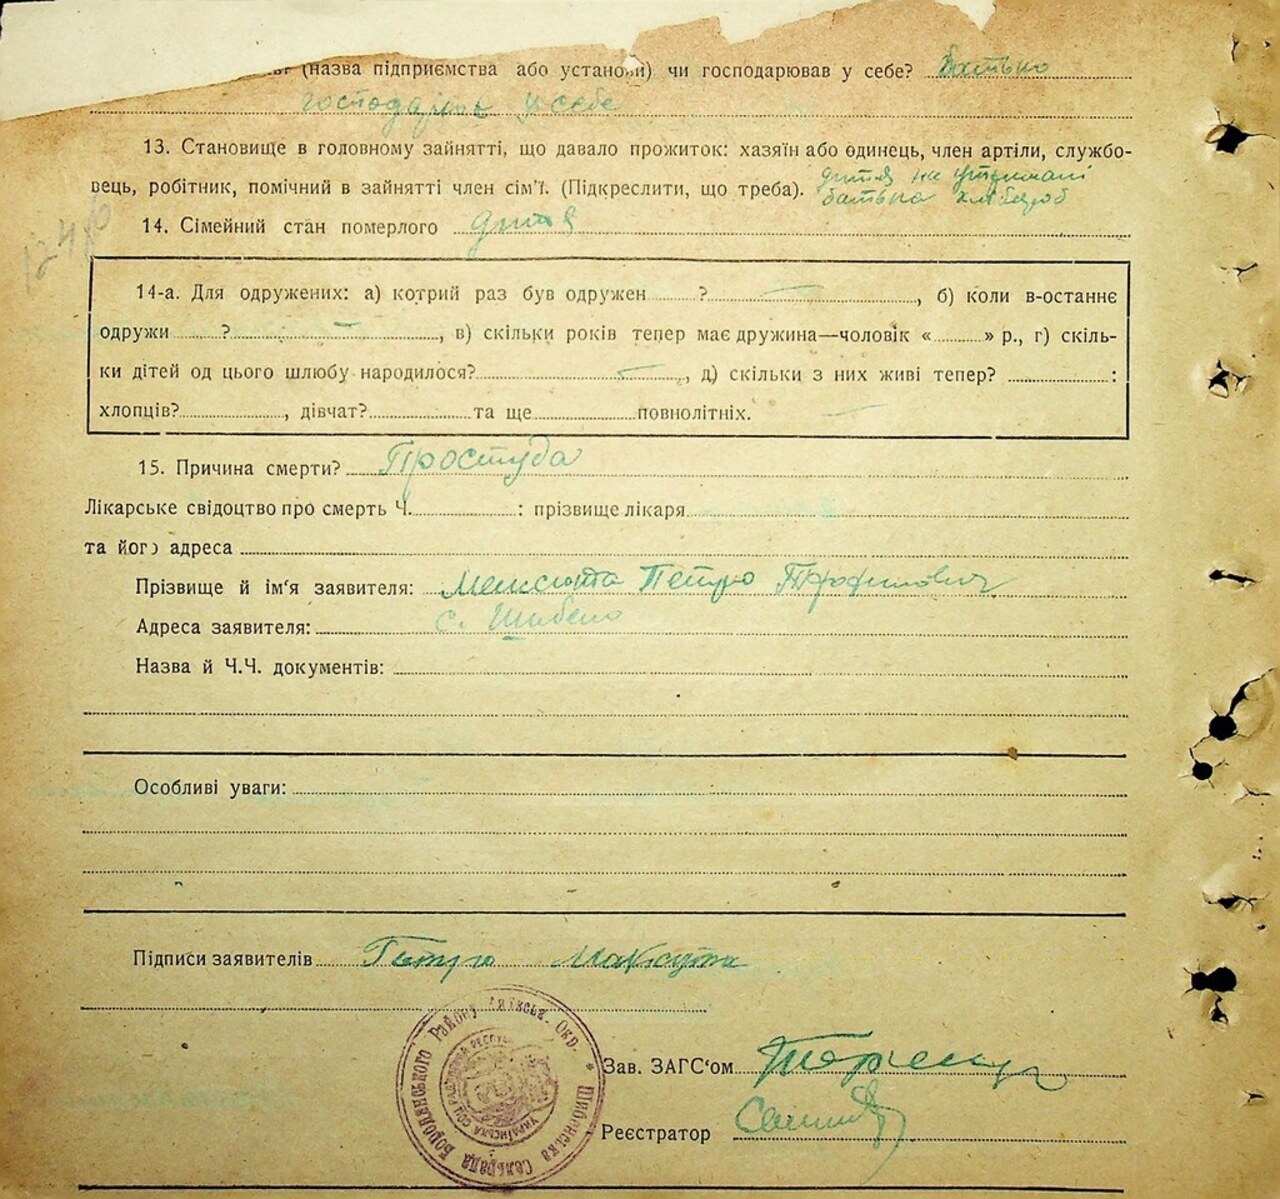 (назва підприємства або установи) чи господарював у себе? батько
господарює у себе
13. Становище в головному зайнятті, що давало прожиток: хазяїн або одинець, член артіли, службо-
вець, робітник, помічний в зайнятті член сім'ї. (Підкреслити, що треба). дитя на утриманні
батька хлібороб
14. Сімейний стан померлого дитя
14-а. Для одружених: а) котрий раз був одружен ? —, б) коли в-останнє
одружи ? —, в) скільки років тепер має дружина—чоловік « » р., г) скіль-
ки дітей од цього шлюбу народилося? —, д) скільки з них живі тепер? :
хлопців? , дівчат? та ще повнолітніх. —
15. Причина смерти? Простуда
Лікарське свідоцтво про смерть Ч. : прізвище лікаря
та його адреса
Прізвище й ім'я заявителя: Максюта Петро Трофимович
Адреса заявителя: с. Шибено
Назва й Ч.Ч. документів:
Особливі уваги:
Підписи заявителів Петро Максюта
Шибенська Сельрада Бородянського Району Київськ. Окр. *
УКРАЇНСЬКА СОЦ РАДЯНСЬКА РЕСПУ
Зав. ЗАГС'ом
Реєстратор